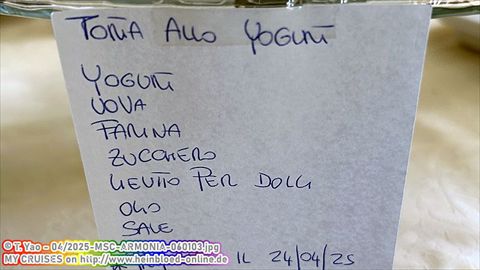 TORTA ALLO YOGURT
YOGURT
UOVA
FARINA
ZUCCHERO
LIEVITO PER DOLCI
OLIO
SALE
IL 24/04/25
©T. Yao - 04/2025-MSC-ARMONIA-060103.jpg
MY CRUISES on http://www.heinbloed-online.de